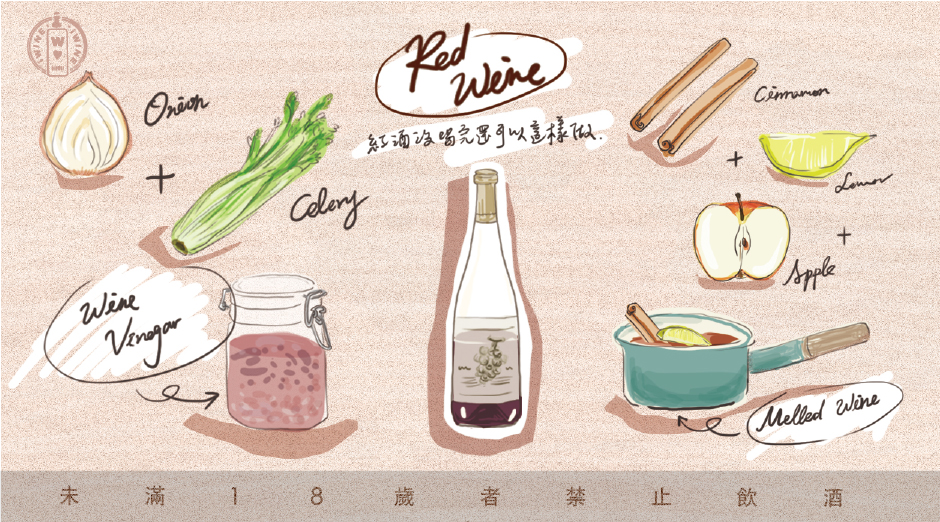 Red
Wine
紅酒沒喝完還可以這樣做.
Onion
+
Celery
Wine
Vinegar
Cinnamon
+
Lemon
+
Apple
Melled Wine
未滿18歲者禁止飲酒